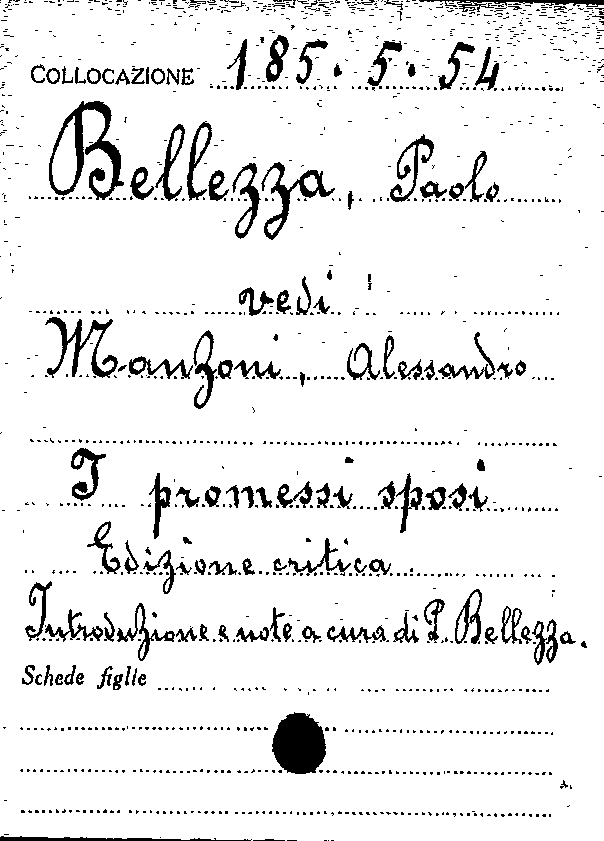 COLLOCAZIONE 185.5.54
Bellezza, Paolo
vedi
Manzoni, Alessandro
I promessi sposi
Edizione critica.
Introduzione e note a cura di P. Bellezza.
Schede figlie